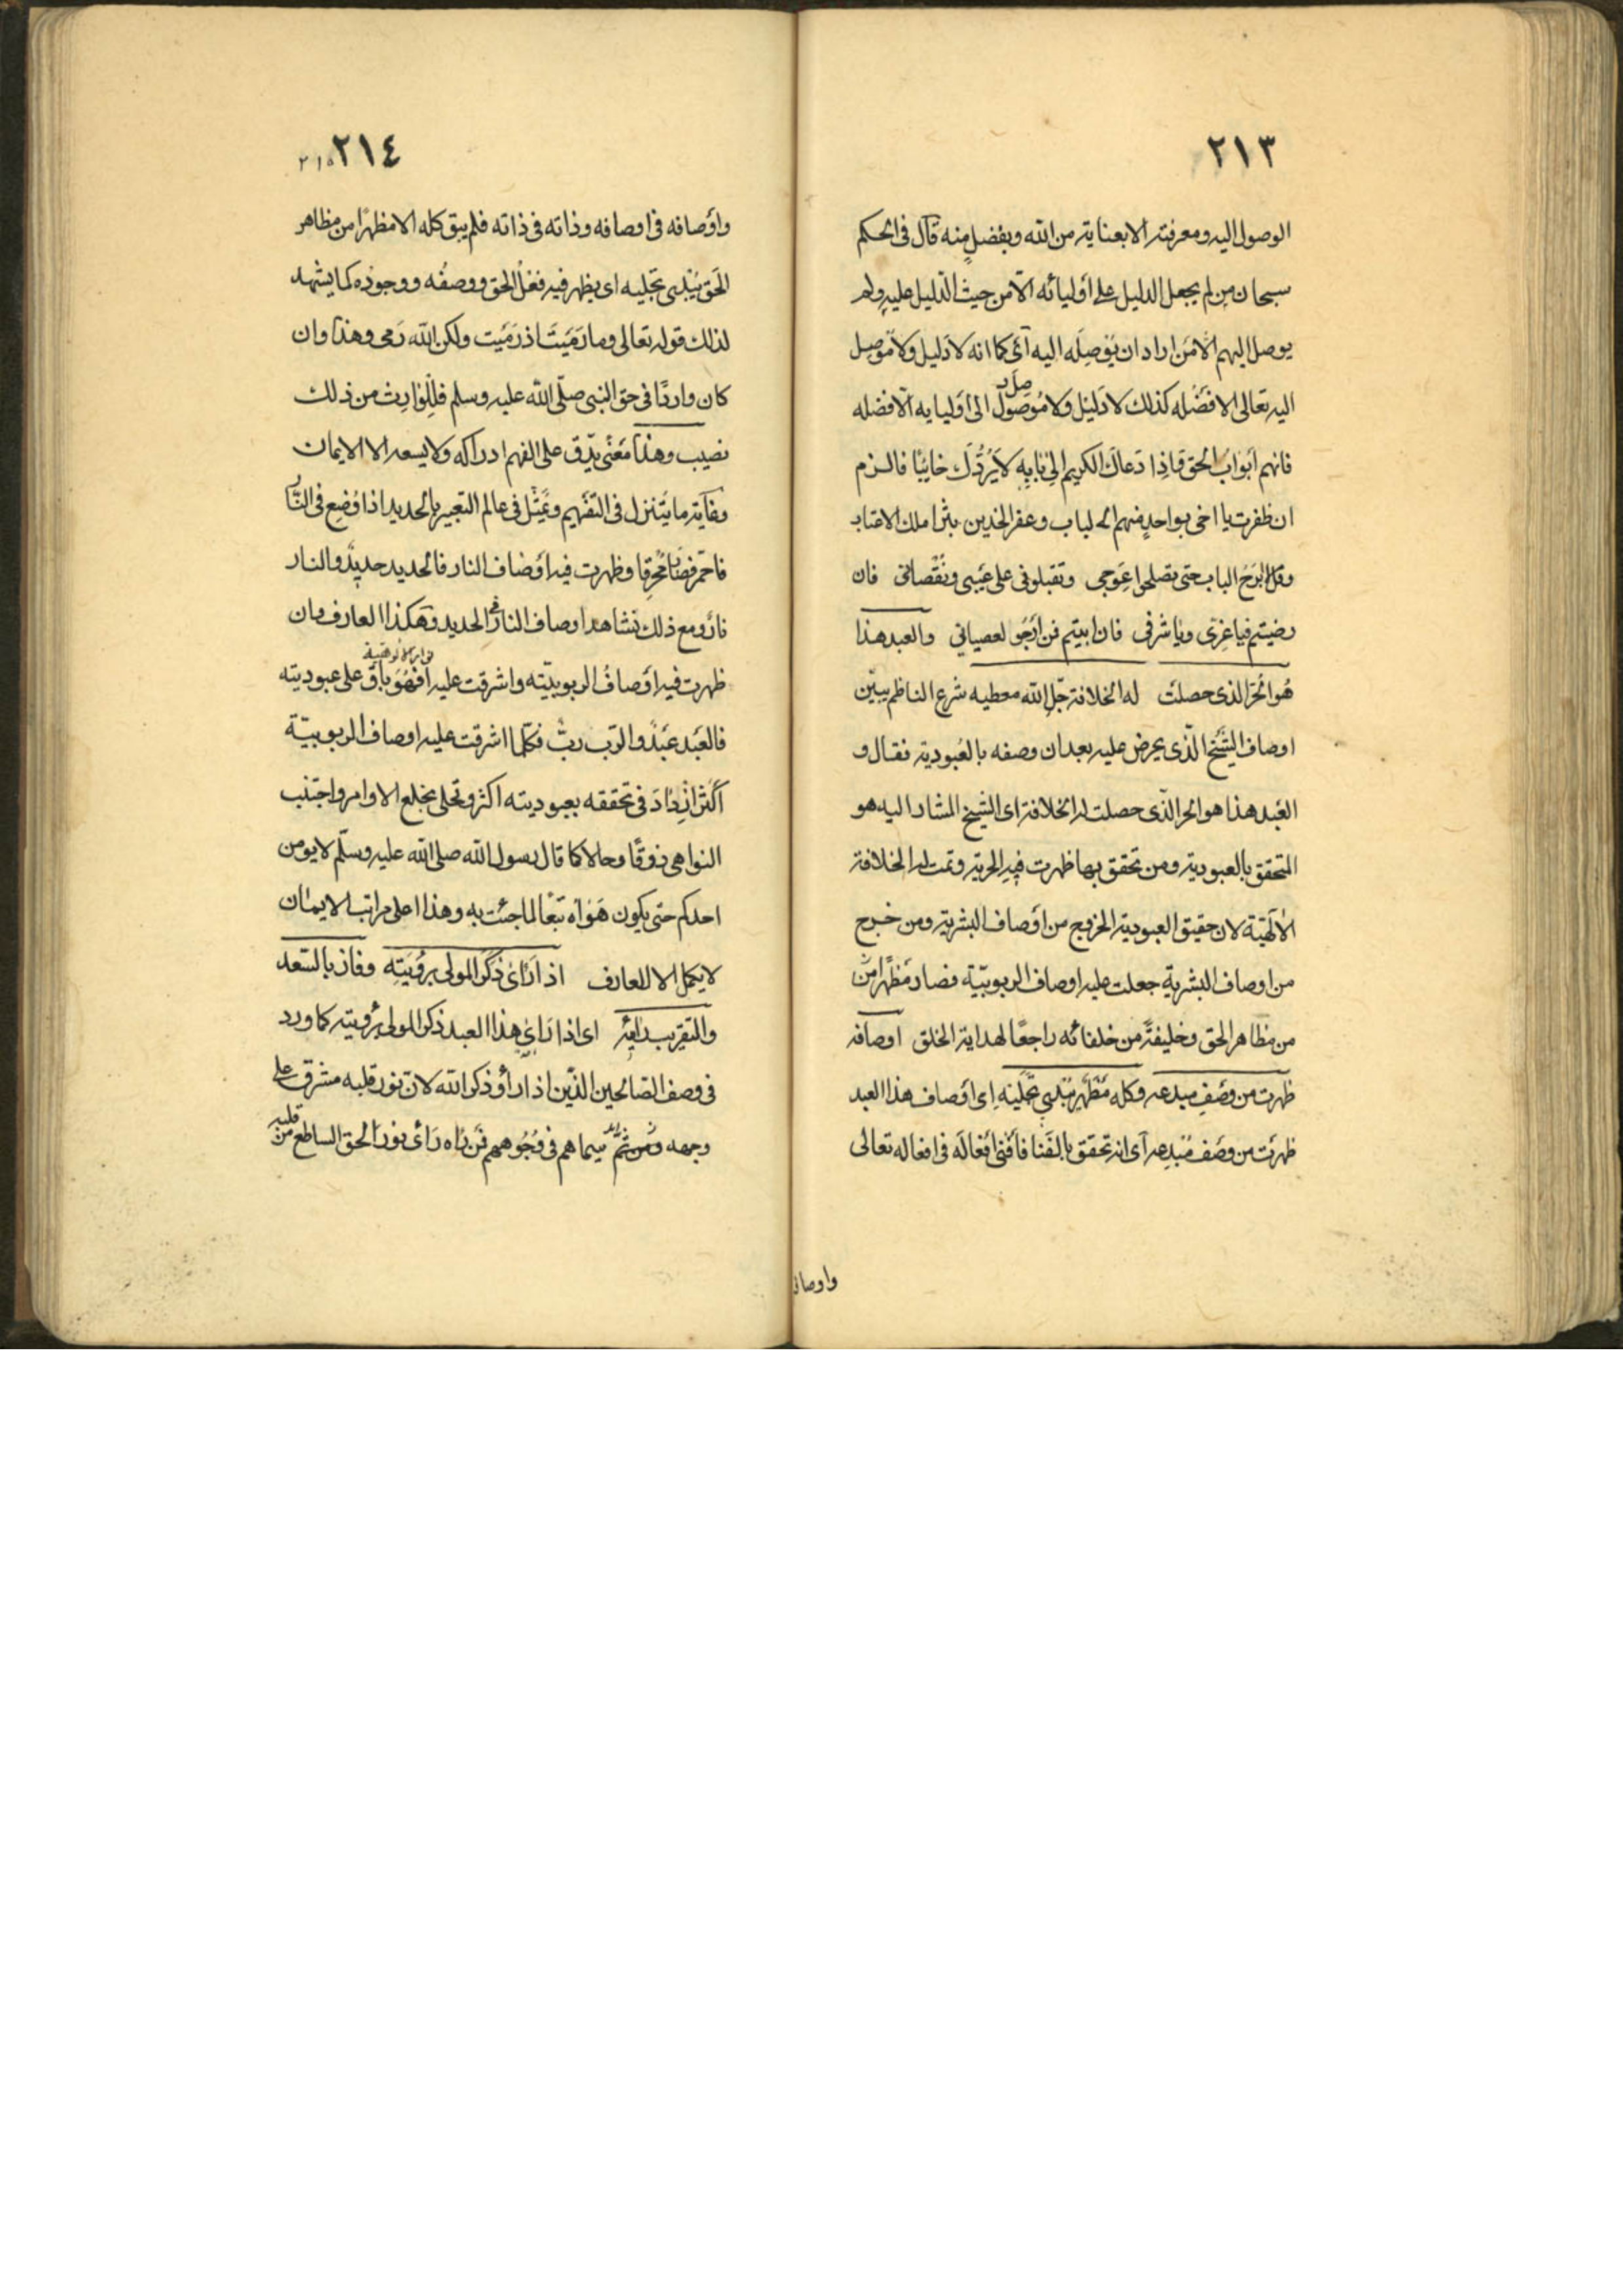 ٢١٣
الوصول اليه ومعرفته الا بعناية من الله وبفضل منه قال فى الحكم
سبحان من لم يجعل الدليل على أوليائه الّا من حيث الدليل عليه ولم
يوصل اليهم الا من اراد ان يوصله اليه أى كما انه لا دليل ولا موصل
اليه تعالى الا فضله كذلك لا دليل ولا موصول الى أوليايه الّا فضله
فانهم أبواب الحق فاذا دعاك الكريم الى بابه لا يردّك خايبا فالزم
ان ظفرت يا اخى بواحد منهم الباب وعفر الخدين بثرا ملك الاعتاب
وقل لا ابرح الباب حتى تصلحوا عوجى وتقبلونى على عيبى ونقصانى فان
رضيتم فيا عزى ويا شرفى فان ابيتم فمن ارجو لعصيانى والعبد هذا
هو الحر الذى حصلت له الخلافة جل الله معطيه شرع الناظم يبيّن
اوصاف الشيخ الّذى يحرض عليه بعد ان وصفه بالعبودية فقال و
العبد هذا هو الحر الّذى حصلت له الخلافة اى الشيخ المشار اليه هو
المتحقق بالعبودية ومن تحقق بها ظهرت فيه الحرية وتمت له الخلافة
الالهيّة لان حقيق العبودية الخروج من أوصاف البشرية ومن خرج
من اوصاف البشرية جعلت عليه اوصاف الربوبيّة فصار مظهرا من
من مظاهر الحق وخليفة من خلفائه راجعا لهداية الخلق اوصافه
ظهرت من وصف مبدعه وكله مظهر مبدى تجليه اى أوصاف هذا العبد
ظهرت من وصف مبدعه أى انه تحقق بالفنا فأفنى أفعاله فى افعاله تعالى
واوصافه
٢١٤ ٢١٥
وأوصافه فى اوصافه وذاته فى ذاته فلم يبق كله الا مظهرا من مظاهر
الحق يبدى تجليه اى يظهر فيه فعل الحق ووصفه ووجوده كما يشهد
لذلك قوله تعالى وما رميت اذ رميت ولكن الله رمى وهذا وان
كان واردا فى حق النبى صلّى الله عليه وسلم فللوارث من ذلك
نصيب وهذا معنى يدّق على الفهم ادراكه ولا يسعه الا الايمان
وغاية ما يتنزل فى التفهيم ويمثّل فى عالم التعبير بالحديد اذا وضع فى النّار
فاحمر فصار محرقا وظهرت فيه أوصاف النار فالحديد حديد والنار
نار ومع ذلك تشاهد اوصاف النار فى الحديد وهكذا العارف وان
ظهرت فيه أوصاف الربوبيّته واشرقت عليه انوار الالوهيّة فهو باق على عبوديته
فالعبد عبد والرّب ربّ فكلّما اشرقت عليه اوصاف الربوبيّة
أكثر ازداد فى تحققه بعبوديته اكثر وتحلى بخلع الاوامر واجتنب
النواهى ذوقا وحالا كما قال رسول الله صلى الله عليه وسلّم لا يومن
احدكم حتى يكون هواه تبعا لما جئت به وهذا اعلى مراتب الايمان
لا يكمل الا للعارف اذا رأى ذكر المولى برؤيته وفاز بالسّعد
والتقريب رائيه اى اذا رأى هذا العبد ذكر المولى برؤيته كما ورد
فى وصف الصالحين الذين اذا رأو ذكر الله لان نور قلبه مشرق على
وجهه ومن ثمّ سيماهم فى وجوههم فمن راه رأى نور الحق الساطع من قلبه